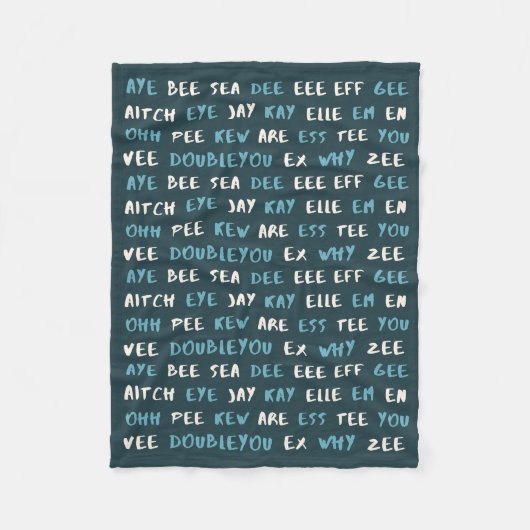 AYE BEE SEA DEE EEE EFF GEE
AITCH EYE JAY KAY ELLE EM EN
OHH PEE KEW ARE ESS TEE YOU
VEE DOUBLEYOU EX WHY ZEE
AYE BEE SEA DEE EEE EFF GEE
AITCH EYE JAY KAY ELLE EM EN
OHH PEE KEW ARE ESS TEE YOU
VEE DOUBLEYOU EX WHY ZEE
AYE BEE SEA DEE EEE EFF GEE
AITCH EYE JAY KAY ELLE EM EN
OHH PEE KEW ARE ESS TEE YOU
VEE DOUBLEYOU EX WHY ZEE
AYE BEE SEA DEE EEE EFF GEE
AITCH EYE JAY KAY ELLE EM EN
OHH PEE KEW ARE ESS TEE YOU
VEE DOUBLEYOU EX WHY ZEE